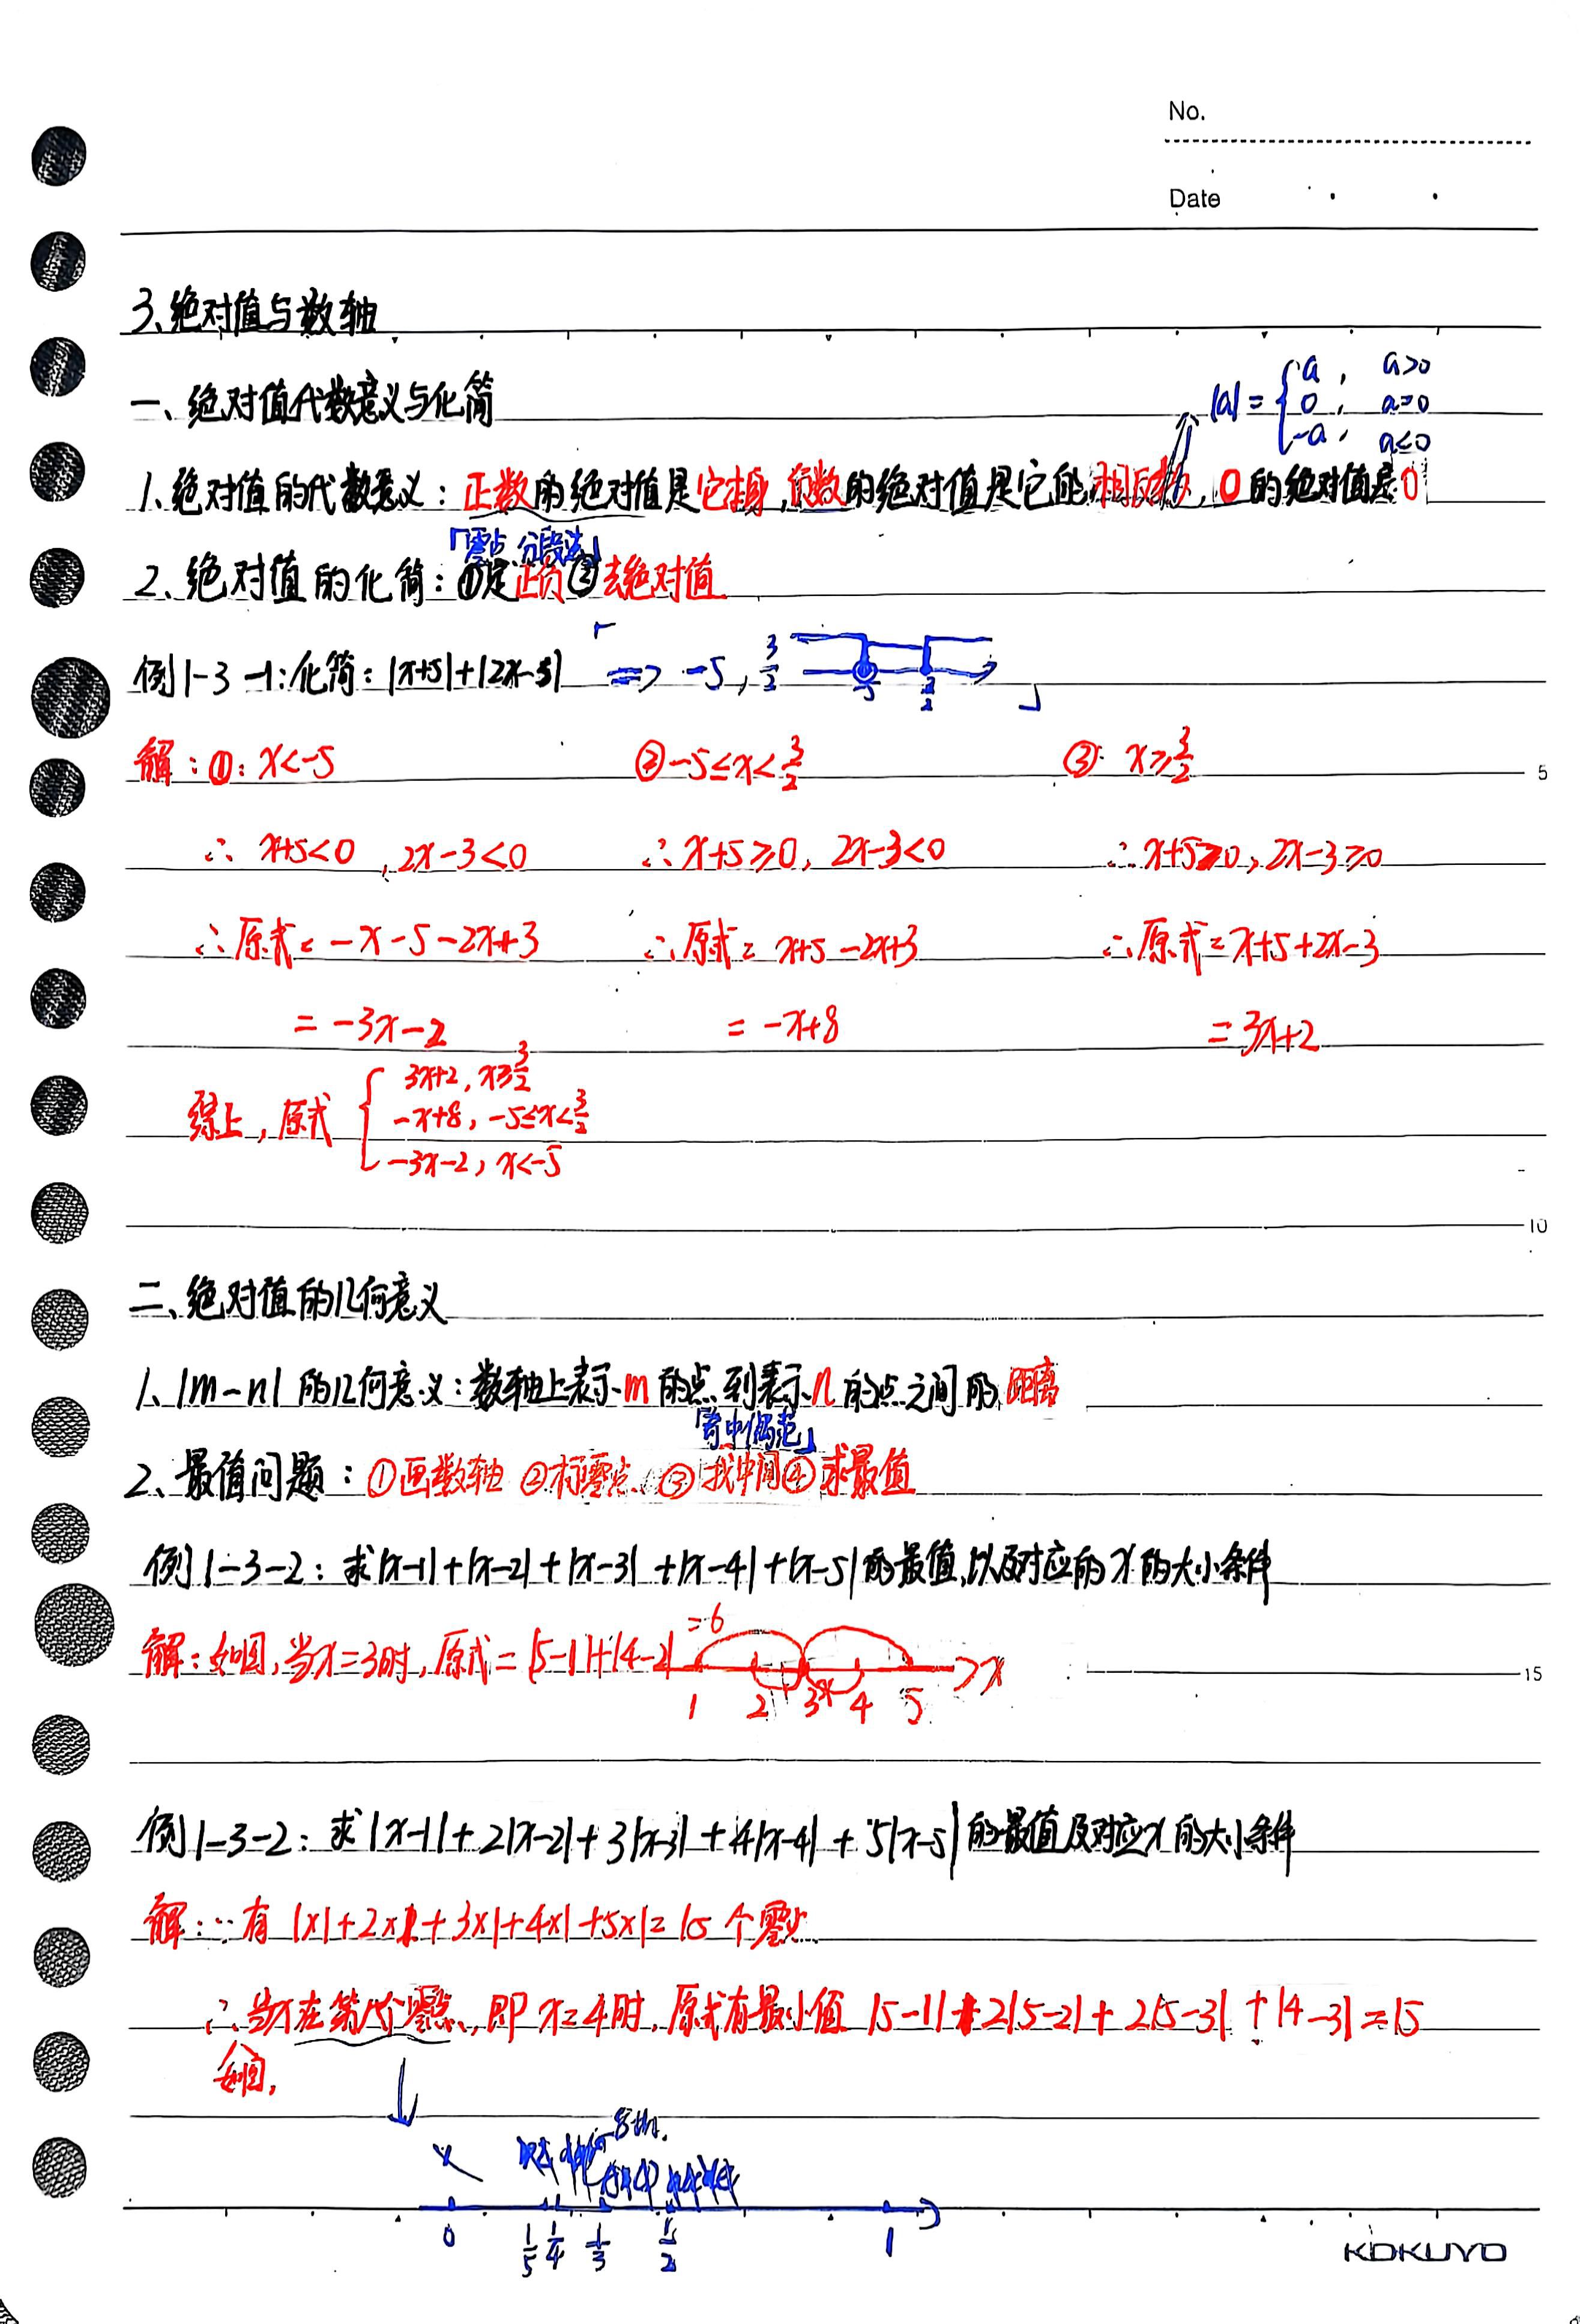 No.
Date
3、绝对值与数轴
一、绝对值代数意义与化简
|a| = { a, a>0
0, a=0
-a, a≤0
1、绝对值的代数意义：正数的绝对值是它本身，负数的绝对值是它的相反数，0的绝对值是0
「零点分段法」
2、绝对值的化简：①定正负②去绝对值
例1-3-1：化简：|x+5|+|2x-3| 「=> -5, 3/2 -5 3/2 」
解：①：x<-5 ②-5≤x<3/2 ③ x≥3/2
5
∴ x+5<0 , 2x-3<0 ∴ x+5≥0, 2x-3<0 ∴ x+5≥0, 2x-3≥0
∴原式= -x-5-2x+3 ∴原式= x+5-2x+3 ∴原式=x+5+2x-3
= -3x-2 = -x+8 = 3x+2
综上，原式 { 3x+2, x≥3/2
-x+8, -5≤x<3/2
-3x-2, x<-5
10
二、绝对值的几何意义
1、|m-n| 的几何意义：数轴上表示m的点到表示n的点之间的距离
「奇中偶范」
2、最值问题：①画数轴 ②标零点 ③找中间④求最值
例1-3-2：求|x-1|+|x-2|+|x-3|+|x-4|+|x-5|的最值，以及对应的x的大小条件
解：如图，当x=3时，原式=|5-1|+|4-2| =6
1 2 3 4 5 x
15
例1-3-2：求|x-1|+2|x-2|+3|x-3|+4|x-4|+5|x-5|的最值及对应x的大小条件
解：∵有 1×1+2×1+3×1+4×1+5×1=15个零点
∴当x在第八个零点，即x=4时，原式有最小值 |5-1|+2|5-2|+2|5-3|+|4-3|=15
如图，
8th.
0 1/5 1/4 1/3 1/2 1
KOKUYO